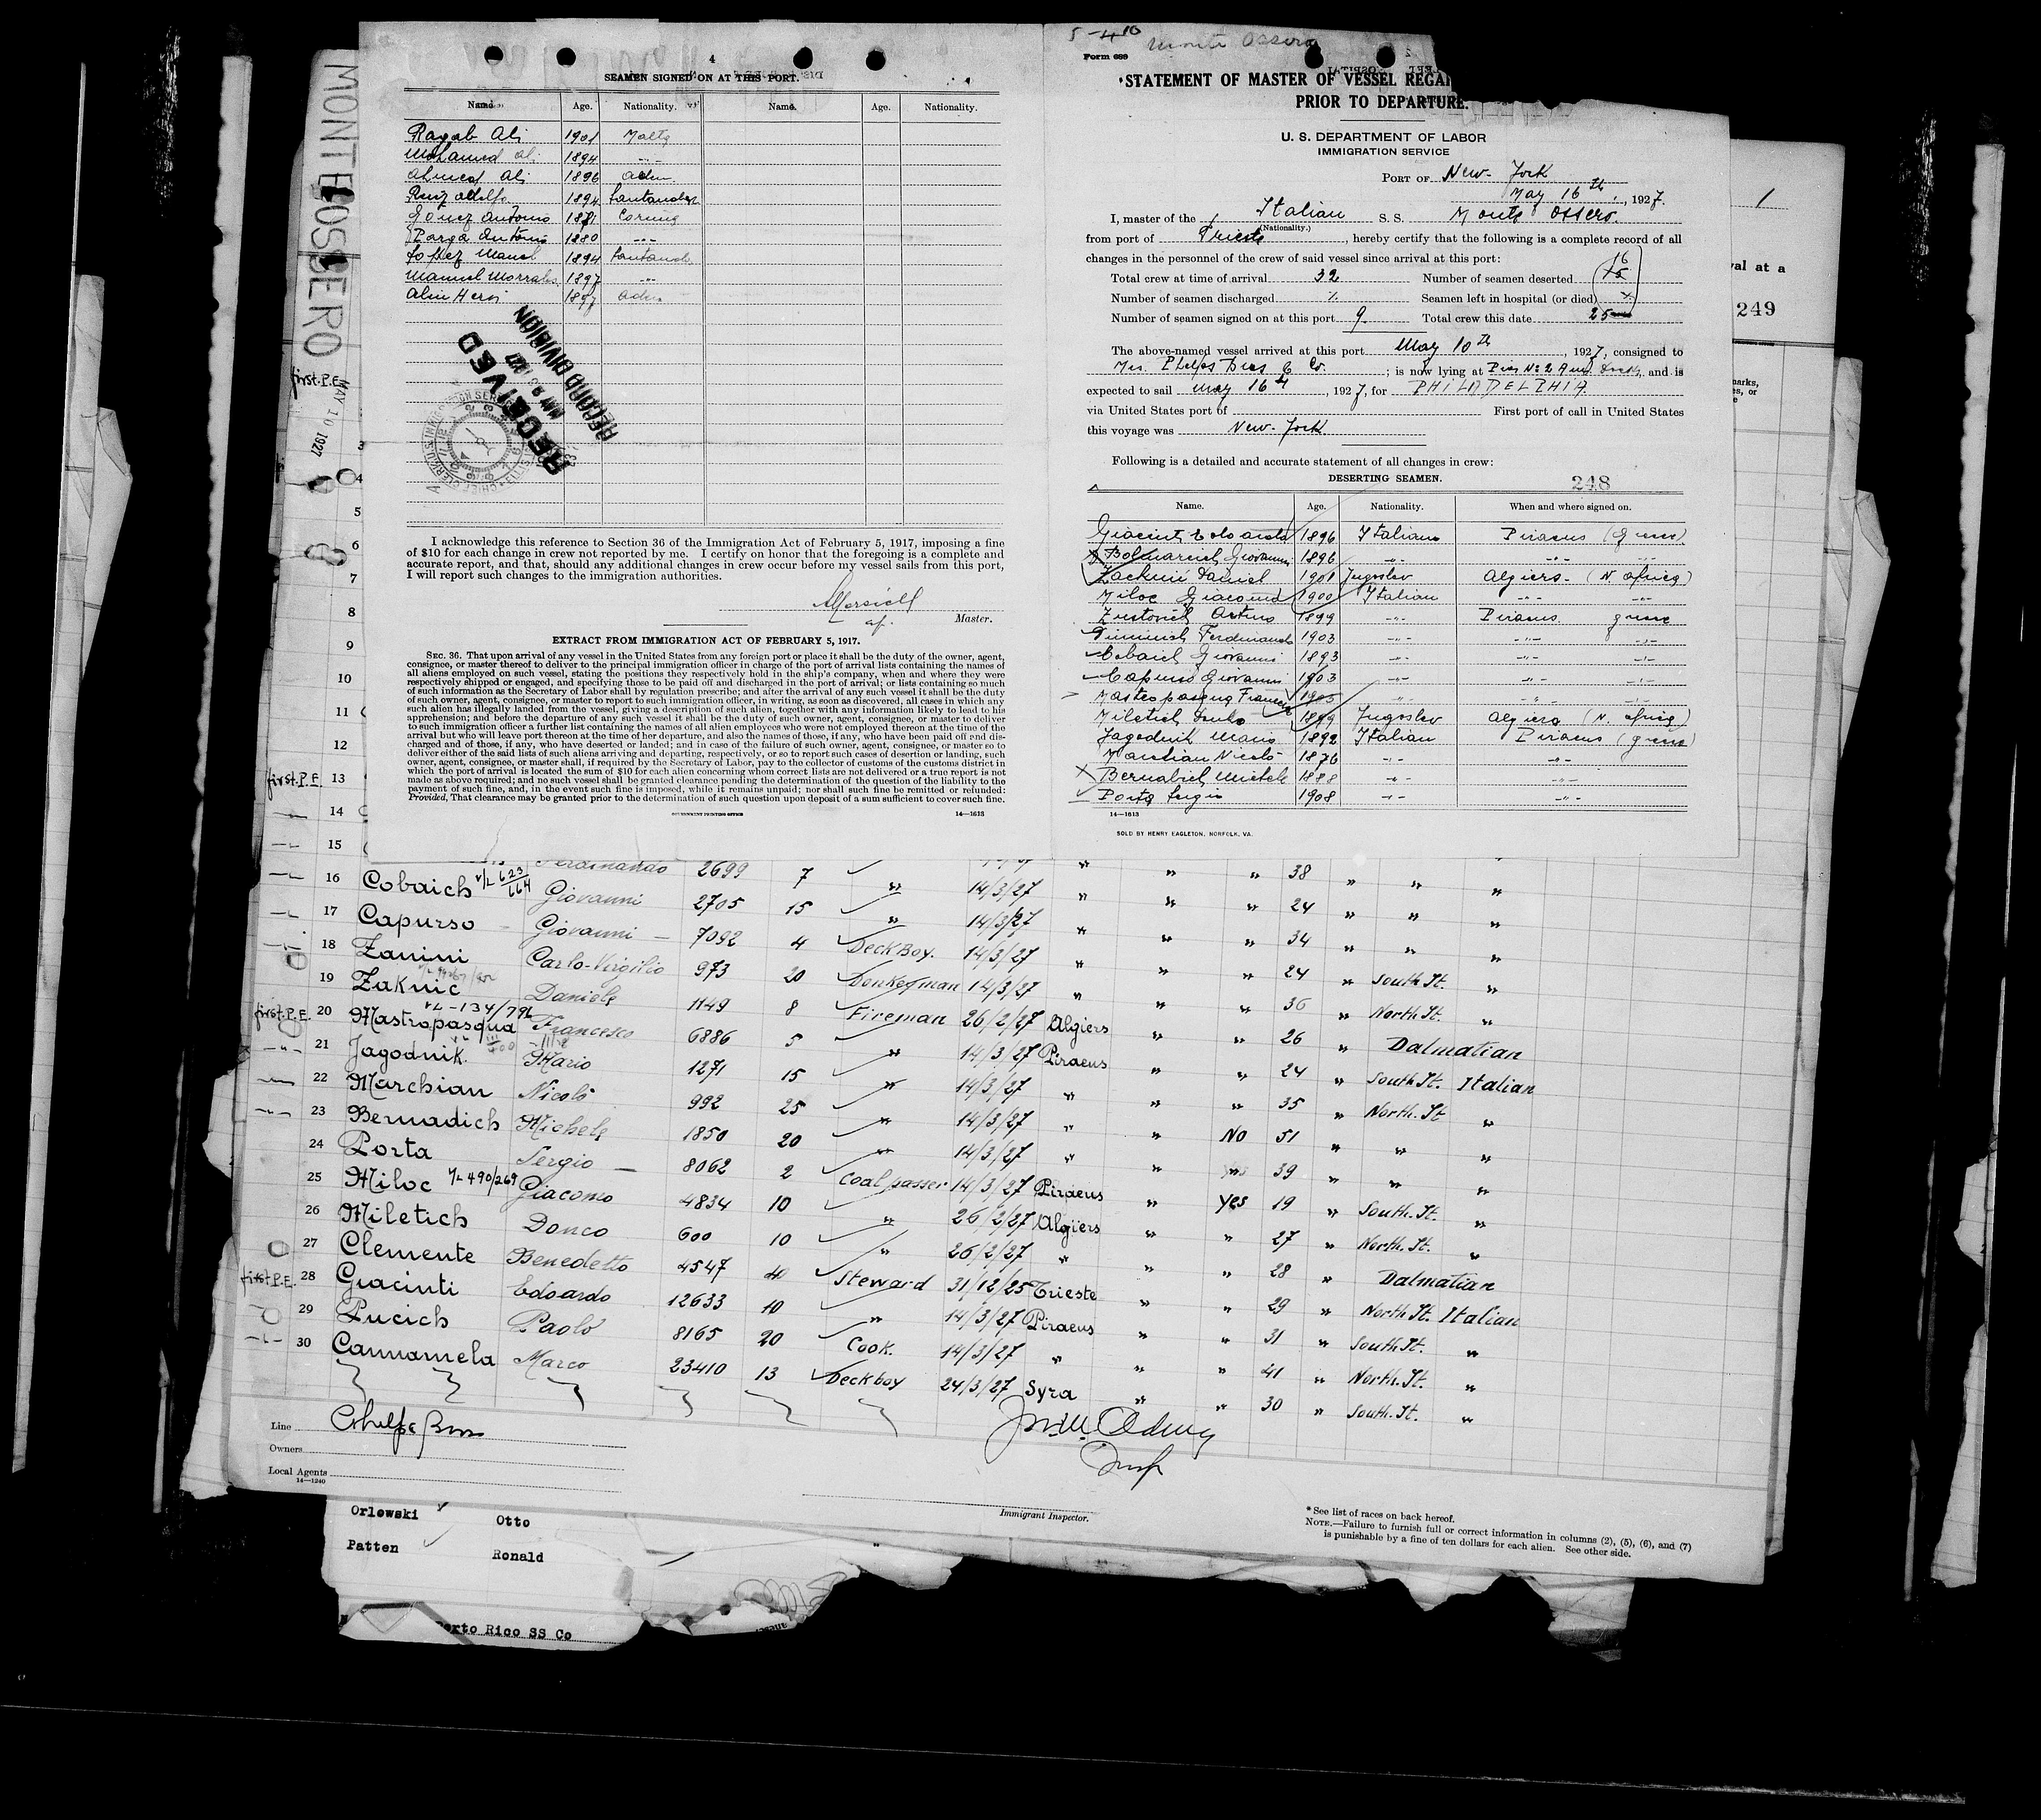 4
SEAMEN SIGNED ON AT THIS PORT.
Name. Age. Nationality. Name. Age. Nationality.
Ragab Ali 1901 Malta
Mohamed Ali 1894 -"-
Ahmed Ali 1896 Aden
Ruiz Adolfo 1894 Santander
Gomez Antonio 1891
Parga Antonio 1880 -"-
Lopez Manel 1894 Santand
Manuel Morrales 1897 -"-
Alin Hersi 1897 Aden
RECEIVED
MAY 1927
RECORD DIVISION
I acknowledge this reference to Section 36 of the Immigration Act of February 5, 1917, imposing a fine
of $10 for each change in crew not reported by me. I certify on honor that the foregoing is a complete and
accurate report, and that, should any additional changes in crew occur before my vessel sails from this port,
I will report such changes to the immigration authorities.
Master.
EXTRACT FROM IMMIGRATION ACT OF FEBRUARY 5, 1917.
SEC. 36. That upon arrival of any vessel in the United States from any foreign port or place it shall be the duty of the owner, agent,
consignee, or master thereof to deliver to the principal immigration officer in charge of the port of arrival lists containing the names of
all aliens employed on such vessel, stating the positions they respectively hold in the ship's company, when and where they were
respectively shipped or engaged, and specifying those to be paid off and discharged in the port of arrival; or lists containing so much
of such information as the Secretary of Labor shall by regulation prescribe; and after the arrival of any such vessel it shall be the duty
of such owner, agent, consignee, or master to report to such immigration officer, in writing, as soon as discovered, all cases in which any
such alien has illegally landed from the vessel, giving a description of such alien, together with any information likely to lead to his
apprehension; and before the departure of any such vessel it shall be the duty of such owner, agent, consignee, or master to deliver
to such immigration officer a further list containing the names of all alien employees who were not employed thereon at the time of the
arrival but who will leave port thereon at the time of her departure, and also the names of those, if any, who have been paid off and dis-
charged and of those, if any, who have deserted or landed; and in case of the failure of such owner, agent, consignee, or master so to
deliver either of the said lists of such aliens arriving and departing, respectively, or so to report such cases of desertion or landing, such
owner, agent, consignee, or master shall, if required by the Secretary of Labor, pay to the collector of customs of the customs district in
which the port of arrival is located the sum of $10 for each alien concerning whom correct lists are not delivered or a true report is not
made as above required; and no such vessel shall be granted clearance pending the determination of the question of the liability to the
payment of such fine, and, in the event such fine is imposed, while it remains unpaid; nor shall such fine be remitted or refunded:
Provided, That clearance may be granted prior to the determination of such question upon deposit of a sum sufficient to cover such fine.
GOVERNMENT PRINTING OFFICE 14—1613
Monte Ossero
Form 689
STATEMENT OF MASTER OF VESSEL REGA
PRIOR TO DEPARTURE.
U. S. DEPARTMENT OF LABOR
IMMIGRATION SERVICE
PORT OF New-York
May 16th, 1927.
I, master of the Italian S. S. Monte Ossero.
(Nationality.)
from port of Trieste, hereby certify that the following is a complete record of all
changes in the personnel of the crew of said vessel since arrival at this port:
Total crew at time of arrival 32 Number of seamen deserted 16 15
Number of seamen discharged % Seamen left in hospital (or died) %
Number of seamen signed on at this port 9. Total crew this date 25
The above-named vessel arrived at this port May 10th, 1927, consigned to
Mrs. Phelps Bros & Co.; is now lying at Pier No 2 and is
expected to sail May 16th, 1927, for PHILADELPHIA
via United States port of First port of call in United States
this voyage was New-York
Following is a detailed and accurate statement of all changes in crew:
DESERTING SEAMEN. 248
Name. Age. Nationality. When and where signed on.
Giacinti Edoardo 1896 Italian Piraeus (Greece)
Giovanni 1896 -"- -"- -"-
Zacknic Daniel 1901 Jugoslav Algiers - (N Africa)
Miloc Giacomo 1900 Italian -"- -"-
Zustovich Arturo 1899 -"- Piraeus Greece
Ferdinando 1903 -"- -"- -"-
Cobaich Giovanni 1893 -"- -"- -"-
Capurso Giovanni 1903 -"- -"- -"-
Mastropasqua Francesco 1905 -"- -"- -"-
Miletich Donko 1899 Jugoslav Algiers (N. Africa)
Jagodnik Mario 1892 Italian Piraeus (Greece)
Marchian Nicolò 1876 -"- -"-
Bernadich Michele 1888 -"- -"-
Porta Sergio 1908 -"- -"-
14—1613
SOLD BY HENRY EAGLETON, NORFOLK, VA.
MONTE OSSERO
MAY 10 1927
1
val at a
249
first.P.E.
3
4
5
6
7
8
9
10
11
12
first.P.E. 13
14
15 Ferdinando 2699 7 " 14/3/27 " " " 38 " " "
16 Cobaich V/L 623/664 Giovanni 2705 15 " 14/3/27 " " " 24 " " "
17 Capurso Giovanni 7092 4 Deck Boy. 14/3/27 " " " 34 " " "
18 Zanini Carlo-Virgilio 973 20 Donkeyman 14/3/27 " " " 24 " South It. "
19 Zaknic Daniele 1149 8 Fireman 26/2/27 Algiers " " 36 " North It. "
first.P.E. 20 Mastropasqua V/L-134/796 Francesco 6886 5 " 14/3/27 Piraeus " " 26 " Dalmatian
21 Jagodnik. Mario 1271 15 " 14/3/27 " " " 24 " South It. Italian
22 Marchian Nicolò 992 25 " 14/3/27 " " " 35 " North. It "
23 Bernadich Michele 1850 20 " 14/3/27 " " No 51 " " "
24 Porta Sergio 8062 2 Coal passer 14/3/27 Piraeus " " 39 " " "
25 Miloc V/L 490/269 Giacomo 4834 10 " 26/2/27 Algiers " yes 19 " South. It. "
26 Miletich Donco 600 10 " 26/2/27 " " " 27 " North. It. "
27 Clemente Benedetto 4547 40 Steward 31/12/25 Trieste " " 28 " Dalmatian
first P.E. 28 Giacinti Edoardo 12633 10 " 14/3/27 Piraeus " " 29 " North It. Italian
29 Lucich Paolo 8165 20 Cook. 14/3/27 " " " 31 " South It. "
30 Cannamela Marco 23410 13 Deck boy 24/3/27 Syra " " 41 " North. It. "
" " 30 " South. It. "
Line Phelps Bros
Owners
Local Agents
14—1240
Immigrant Inspector.
* See list of races on back hereof.
NOTE.—Failure to furnish full or correct information in columns (2), (5), (6), and (7)
is punishable by a fine of ten dollars for each alien. See other side.
Orlowski Otto
Patten Ronald
Porto Rico SS Co